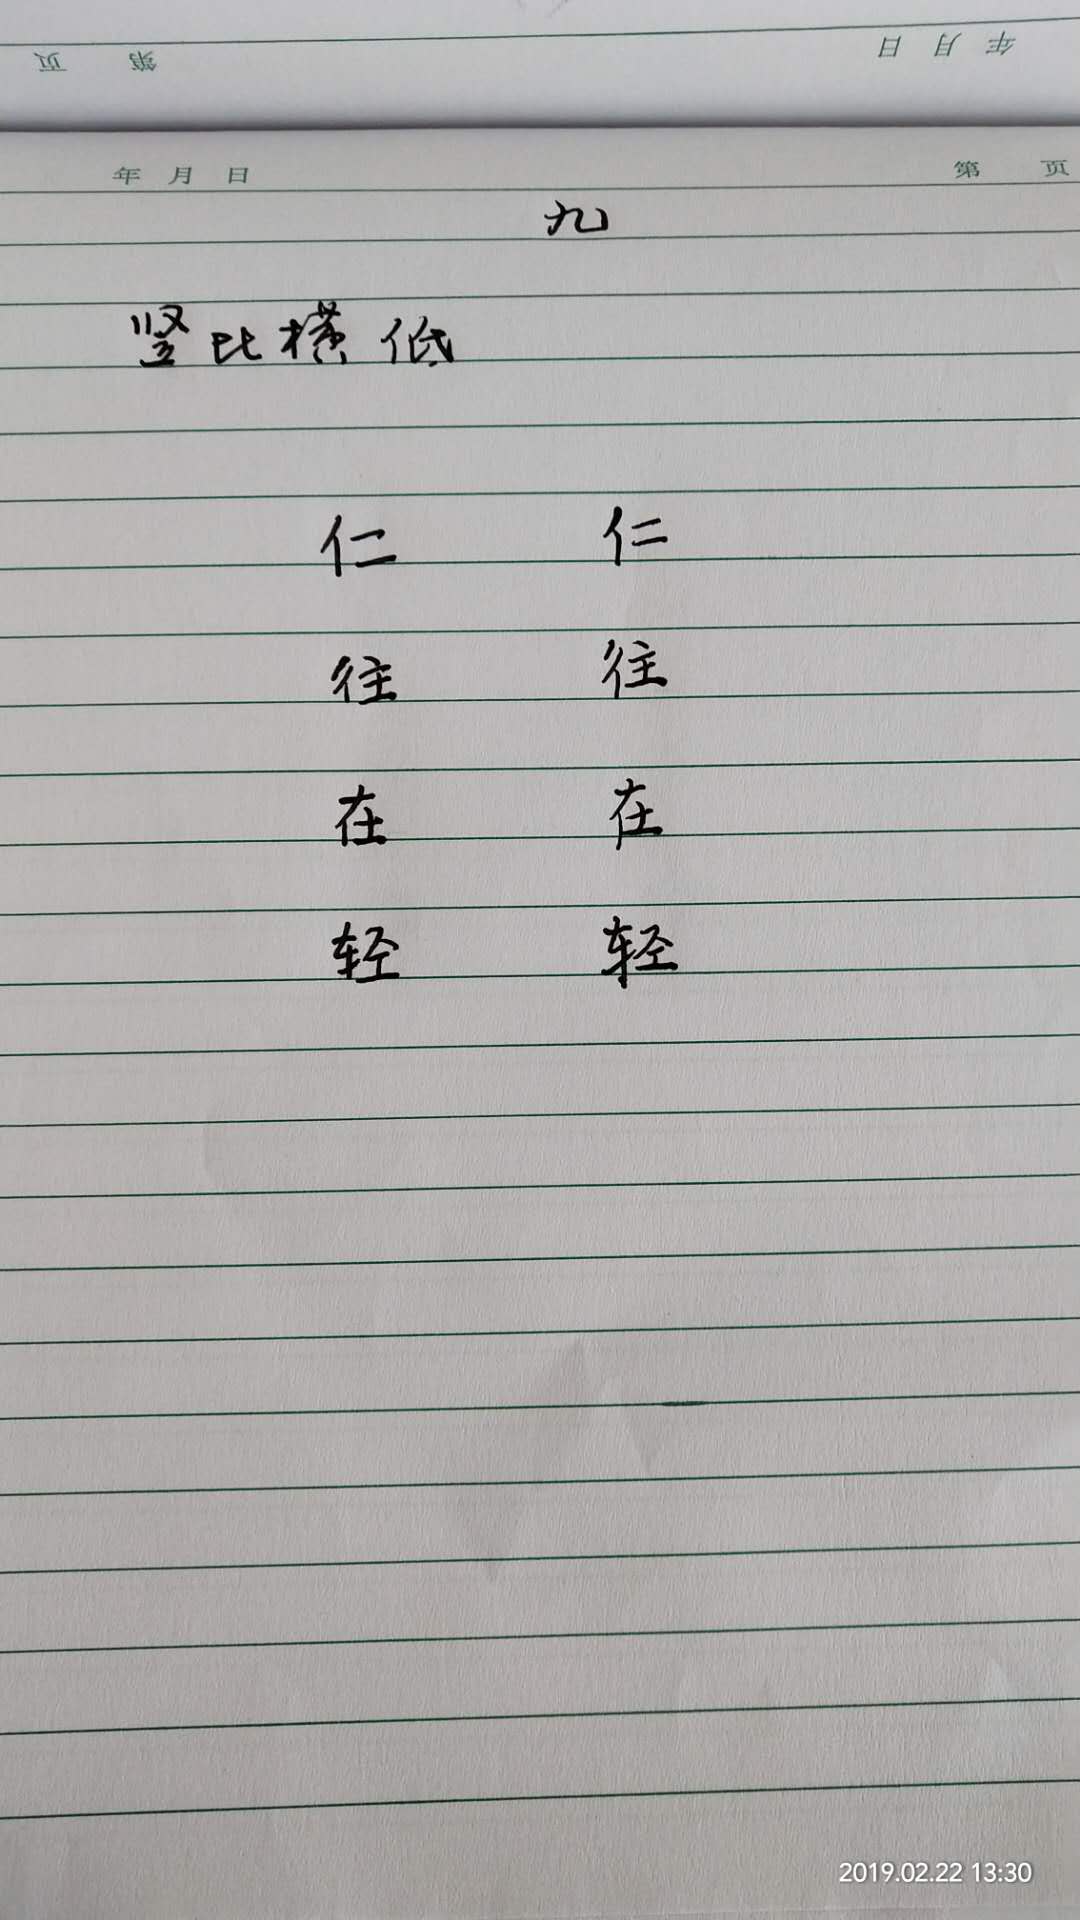 页 第 日 月 年
年 月 日 第 页
九
竖比横低
仁 仁
往 往
在 在
轻 轻
2019.02.22 13:30